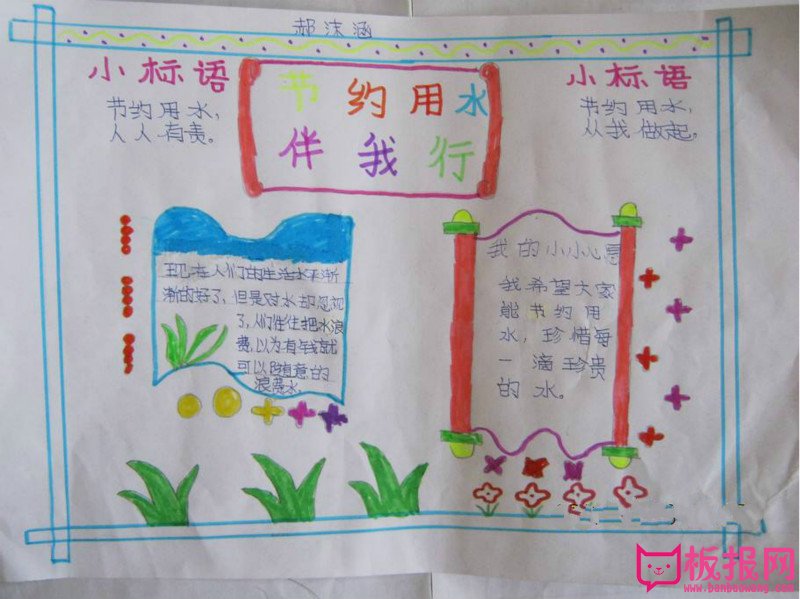 郝沫涵
小标语
节约用水，
人人有责。
节约用水
伴我行
小标语
节约用水，
从我做起。
现在人们的生活水平渐
渐的好了，但是对水却忽视
了，人们往往把水浪
费，以为有钱就
可以随意的
浪费水。
我的小小心愿
我希望大家
能节约用
水，珍惜每
一滴珍贵
的水。
板报网
www.banbaowang.com